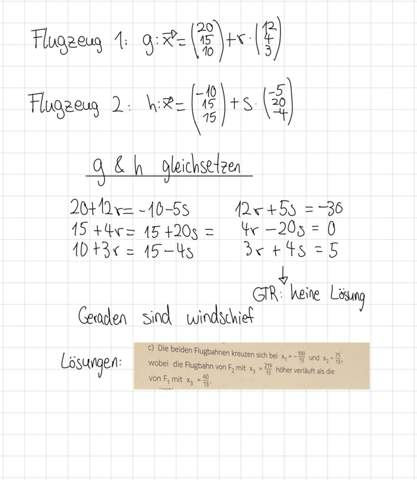 Flugzeug 1: g: x⃗ = (20 15 10) + r · (12 4 3)
Flugzeug 2: h: x⃗ = (-10 15 15) + s · (-5 20 -4)
g & h gleichsetzen
20+12r = -10-5s 12r + 5s = -30
15 + 4r = 15 + 20s = 4r - 20s = 0
10 + 3r = 15 - 4s 3r + 4s = 5
↓
GTR: keine Lösung
Geraden sind windschief
Lösungen:
c) Die beiden Flugbahnen kreuzen sich bei x₁ = und x₂ =
wobei die Flugbahn von F₂ mit x₃ = höher verläuft als die
von F₁ mit x₃ =